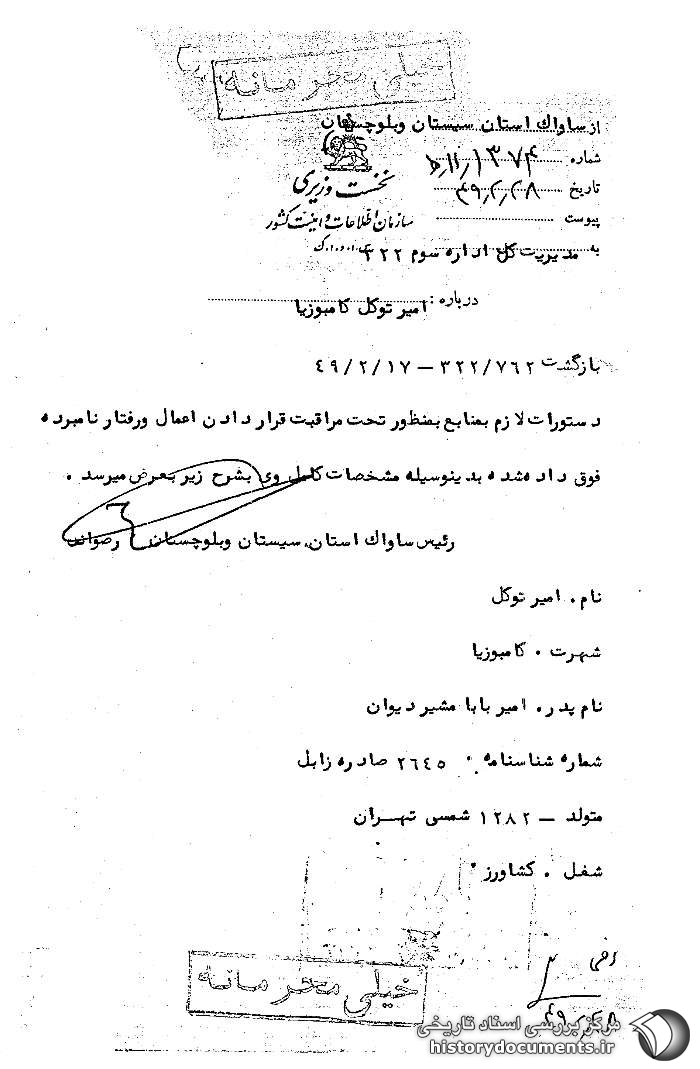 خیلی محرمانه
از ساواك استان سیستان وبلوچستان
شماره ۱۳۷۴
نخست وزیری
تاریخ ۴۹٫۲٫۲۸
سازمان اطلاعات و امنیت کشور
پیوست
س.ا.و.ا.ك
به مدیریت کل اداره سوم ۳۲۲
درباره : امیر توکل کامبوزیا
بازگشت ۳۲۲/۷۶۲ – ۴۹/۲/۱۷
دستورات لازم بمنابع بمنظور تحت مراقبت قرار دادن اعمال ورفتار نامبرده
فوق داده شده بدینوسیله مشخصات کامل وی بشرح زیر بعرض میرسد .
رئیس ساواك استان سیستان وبلوچستان
نام . امیر توکل
شهرت . کامبوزیا
نام پدر . امیر بابا مشیر دیوان
شماره شناسنامه . ۲٦٤٥ صادره زابل
متولد – ۱۲۸۲ شمسی تهران
شغل . کشاورز
خیلی محرمانه
مرکز بررسی اسناد تاریخی
historydocuments.ir